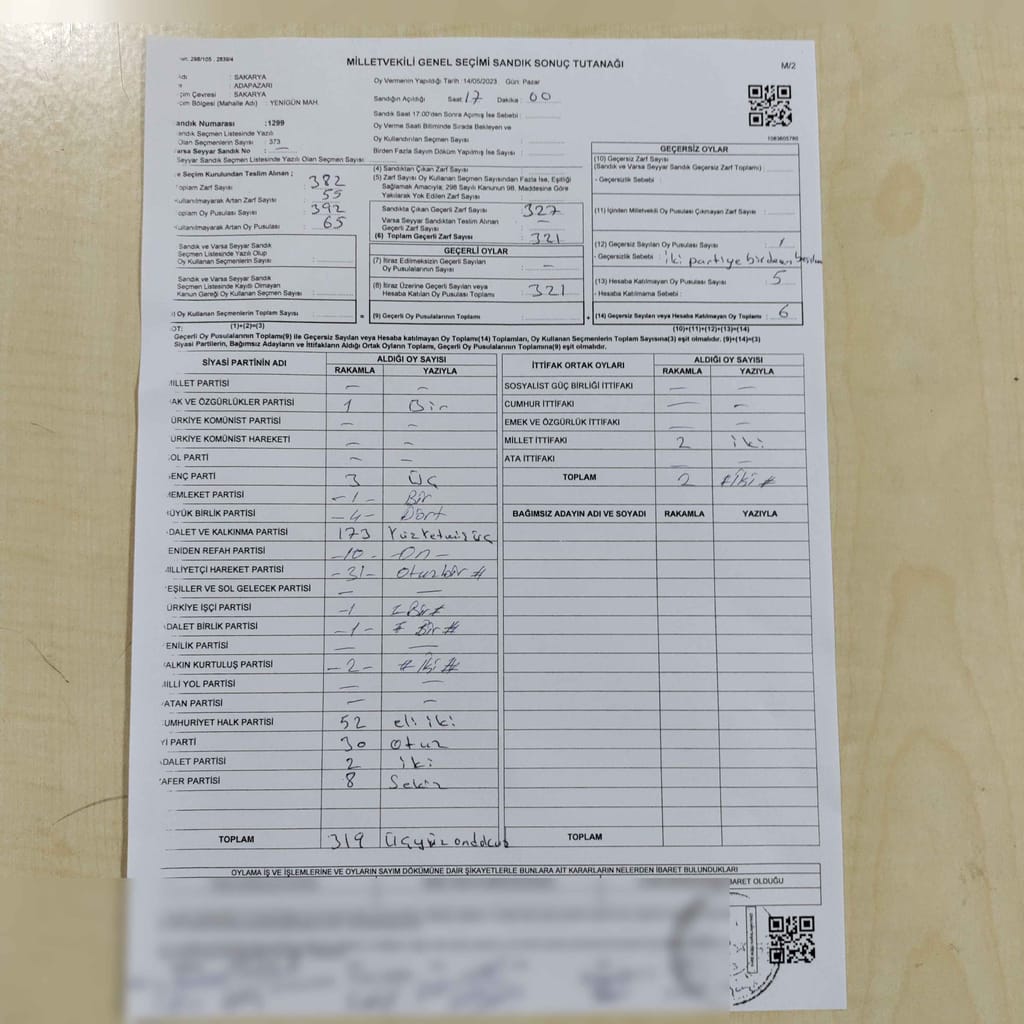 298/105 , 2839/4
MİLLETVEKİLİ GENEL SEÇİMİ SANDIK SONUÇ TUTANAĞI
M/2
: SAKARYA
: ADAPAZARI
çim Çevresi : SAKARYA
çim Bölgesi (Mahalle Adı) : YENİGÜN MAH.
Oy Vermenin Yapıldığı Tarih :14/05/2023 Gün: Pazar
Sandığın Açıldığı Saat : 17 Dakika : 00
Sandık Saat 17:00'den Sonra Açılmış İse Sebebi :
Oy Verme Saati Bitiminde Sırada Bekleyen ve
Oy Kullandırılan Seçmen Sayısı :
Birden Fazla Sayım Döküm Yapılmış İse Sayısı :
andık Numarası :1299
andık Seçmen Listesinde Yazılı
Olan Seçmenlerin Sayısı : 373
arsa Seyyar Sandık No : —
Seyyar Sandık Seçmen Listesinde Yazılı Olan Seçmen Sayısı :
e Seçim Kurulundan Teslim Alınan ;
oplam Zarf Sayısı : 382
ullanılmayarak Artan Zarf Sayısı : 55
oplam Oy Pusulası Sayısı : 392
ullanılmayarak Artan Oy Pusulası : 65
Sandık ve Varsa Seyyar Sandık
Seçmen Listesinde Yazılı Olup
Oy Kullanan Seçmenlerin Sayısı :
Sandık ve Varsa Seyyar Sandık
Seçmen Listesinde Kaydı Olmayan
Kanun Gereği Oy Kullanan Seçmen Sayısı :
) Oy Kullanan Seçmenlerin Toplam Sayısı :
(1)+(2)=(3)
(4) Sandıktan Çıkan Zarf Sayısı :
(5) Zarf Sayısı Oy Kullanan Seçmen Sayısından Fazla İse, Eşitliği
Sağlamak Amacıyla; 298 Sayılı Kanunun 98. Maddesine Göre
Yakılarak Yok Edilen Zarf Sayısı :
Sandıkta Çıkan Geçerli Zarf Sayısı : 327
Varsa Seyyar Sandıktan Teslim Alınan
Geçerli Zarf Sayısı : —
(6) Toplam Geçerli Zarf Sayısı : 321
GEÇERLİ OYLAR
(7) İtiraz Edilmeksizin Geçerli Sayılan
Oy Pusulalarının Sayısı : —
(8) İtiraz Üzerine Geçerli Sayılan veya
Hesaba Katılan Oy Pusulası Toplamı : 321
(9) Geçerli Oy Pusulalarının Toplamı :
1083605780
GEÇERSİZ OYLAR
(10) Geçersiz Zarf Sayısı
(Sandık ve Varsa Seyyar Sandık Geçersiz Zarf Toplamı) :
- Geçersizlik Sebebi :
(11) İçinden Milletvekili Oy Pusulası Çıkmayan Zarf Sayısı :
(12) Geçersiz Sayılan Oy Pusulası Sayısı : 1
- Geçersizlik Sebebi : iki partiye birden
(13) Hesaba Katılmayan Oy Pusulası Sayısı : 5
- Hesaba Katılmama Sebebi :
(14) Geçersiz Sayılan veya Hesaba Katılmayan Oy Toplamı : 6
(10)+(11)+(12)+(13)=(14)
OT:
Geçerli Oy Pusulalarının Toplamı(9) ile Geçersiz Sayılan veya Hesaba katılmayan Oy Toplamı(14) Toplamları, Oy Kullanan Seçmenlerin Toplam Sayısına(3) eşit olmalıdır. (9)+(14)=(3)
Siyasi Partilerin, Bağımsız Adayların ve İttifakların Aldığı Ortak Oyların Toplamı, Geçerli Oy Pusulalarının Toplamına(9) eşit olmalıdır.
SİYASİ PARTİNİN ADI ALDIĞI OY SAYISI
RAKAMLA YAZIYLA
MİLLET PARTİSI — —
AK VE ÖZGÜRLÜKLER PARTİSİ 1 Bir
ÜRKİYE KOMÜNİST PARTİSİ — —
ÜRKİYE KOMÜNİST HAREKETİ — —
OL PARTİ — —
ENÇ PARTİ 3 Üç
EMLEKET PARTİSİ -1- Bir
ÜYÜK BİRLİK PARTİSİ -4- Dört
DALET VE KALKINMA PARTİSİ 173 Yüzyetmişüç
ENİDEN REFAH PARTİSİ -10- On -
İLLİYETÇİ HAREKET PARTİSİ -31- otuzbir #
EŞİLLER VE SOL GELECEK PARTİSİ — —
ÜRKİYE İŞÇİ PARTİSİ -1 # Bir #
DALET BİRLİK PARTİSİ -1- # Bir #
ENİLİK PARTİSİ — —
ALKIN KURTULUŞ PARTİSİ -2- # İki #
İLLİ YOL PARTİSİ — —
ATAN PARTİSİ — —
UMHURİYET HALK PARTİSİ 52 eli iki
Yİ PARTİ 30 otuz
DALET PARTİSİ 2 iki
AFER PARTİSİ 8 Sekiz
TOPLAM 319 Üçyüz ondokuz
İTTİFAK ORTAK OYLARI ALDIĞI OY SAYISI
RAKAMLA YAZIYLA
SOSYALİST GÜÇ BİRLİĞİ İTTİFAKI — —
CUMHUR İTTİFAKI — —
EMEK VE ÖZGÜRLÜK İTTİFAKI — —
MİLLET İTTİFAKI 2 iki
ATA İTTİFAKI — —
TOPLAM 2 # İki #
BAĞIMSIZ ADAYIN ADI VE SOYADI RAKAMLA YAZIYLA
TOPLAM
OYLAMA İŞ VE İŞLEMLERİNE VE OYLARIN SAYIM DÖKÜMÜNE DAİR ŞİKAYETLERLE BUNLARA AİT KARARLARIN NELERDEN İBARET BULUNDUKLARI
BARET OLDUĞU